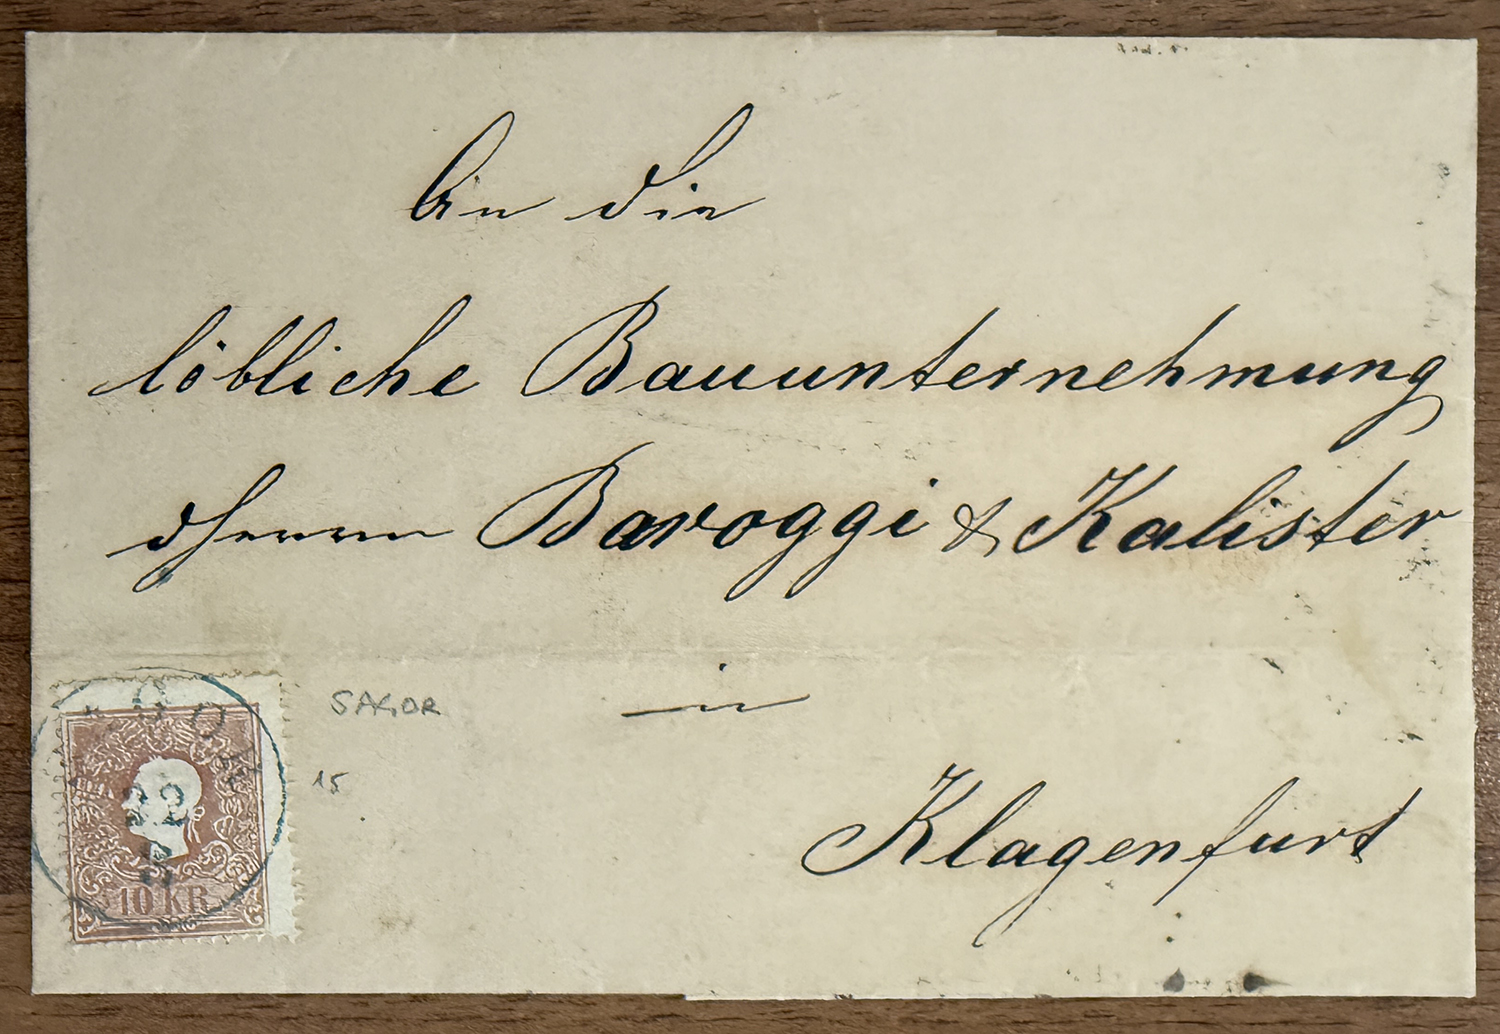 An die
löbliche Bauunternehmung
Herrn Baroggi & Kalister
in
Klagenfurt
SAGOR
15
SAGOR
22
10 KR